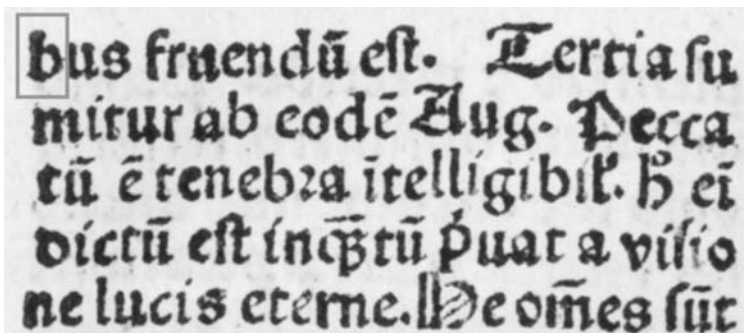 bus fruendū est. Tertia su
mitur ab eodē Aug. Pecca
tū ē tenebꝛa ītelligibil̛. h̄ ei̅
dictū est inqꝫtū p̓uat a visio
ne lucis eterne. De om̄es sūt